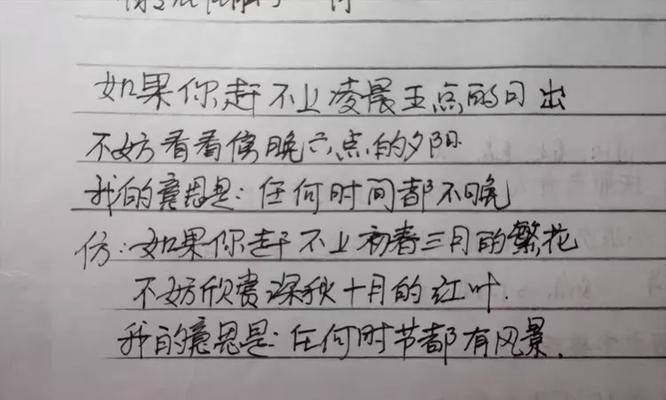 如果你赶不上凌晨五点的日出
不妨看看傍晚六点的夕阳.
我的意思是:任何时间都不晚
仿:如果你赶不上初春三月的繁花
不妨欣赏深秋十月的红叶.
我的意思是:任何时节都有风景.